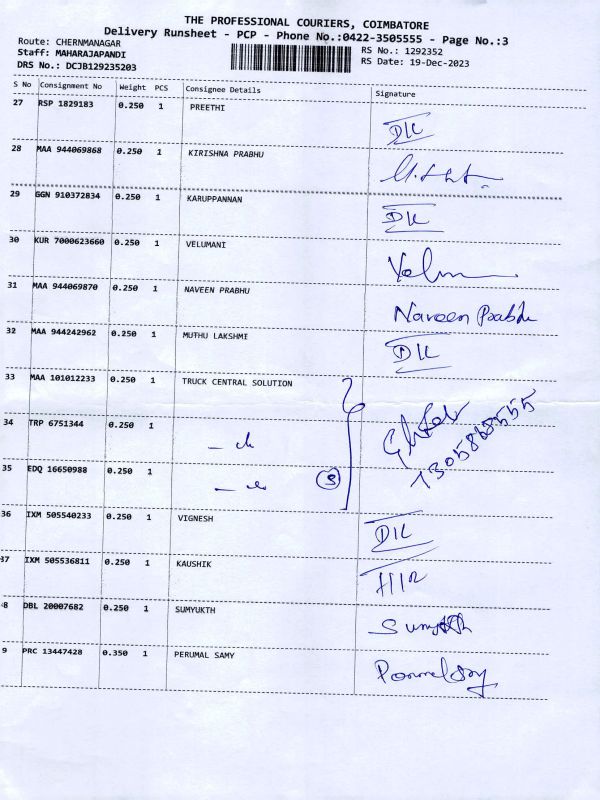 THE PROFESSIONAL COURIERS, COIMBATORE
Delivery Runsheet - PCP - Phone No.:0422-3505555 - Page No.:3
Route: CHERNMANAGAR
Staff: MAHARAJAPANDI
DRS No.: DCJB129235203
RS No.: 1292352
RS Date: 19-Dec-2023
S No Consignment No Weight PCS Consignee Details Signature
27 RSP 1829183 0.250 1 PREETHI
D/L
28 MAA 944069868 0.250 1 KIRISHNA PRABHU
29 GGN 910372834 0.250 1 KARUPPANNAN
D/L
30 KUR 7000623660 0.250 1 VELUMANI
31 MAA 944069870 0.250 1 NAVEEN PRABHU
Naveen Prabhu
32 MAA 944242962 0.250 1 MUTHU LAKSHMI
D/L
33 MAA 101012233 0.250 1 TRUCK CENTRAL SOLUTION
34 TRP 6751344 0.250 1
35 EDQ 16650988 0.250 1
3
36 IXM 505540233 0.250 1 VIGNESH
D/L
37 IXM 505536811 0.250 1 KAUSHIK
8 DBL 20007682 0.250 1 SUMYUKTH
9 PRC 13447428 0.350 1 PERUMAL SAMY